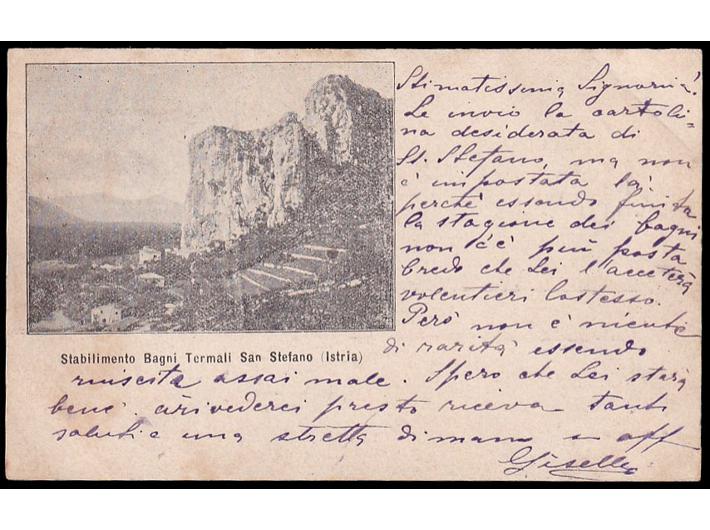 Stimatissima Signorina.
Le invio la cartoli=
na desiderata di
St. Stefano, ma non
è impostata là
perchè essendo finita
la stagione dei bagni
non c'è più posta
Credo che Lei l'accetterà
volentieri lostesso.
Però non è niente
di rarità essendo
Stabilimento Bagni Termali San Stefano (Istria)
riuscita assai male. Spero che Lei starà
bene. arivederci presto riceva tanti
saluti e una stretta di mano aff
Giselle